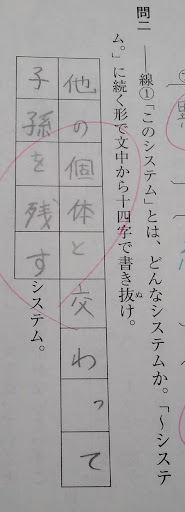 問二 ――線①「このシステム」とは、どんなシステムか。「～システ
ム。」に続く形で文中から十四字で書き抜け。
ぬ
他の個体と交わって
子孫を残す
システム。